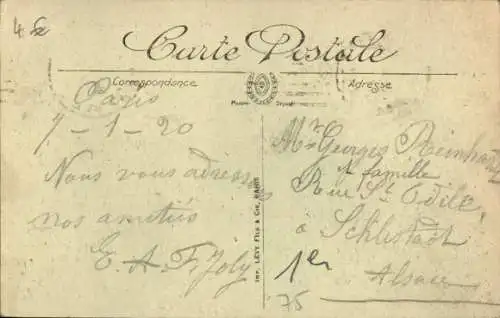 4 €
Carte Postale
Correspondance
Adresse
Marque Déposée
Paris
7-1-20
Nous vous adressons
nos amitiés
E. A. F. Joly
IMP. LÉVY FILS & Cie, PARIS
Mr Georges Reinhard
et famille
Rue St Odile
à Schlestadt
Alsace
1er
75